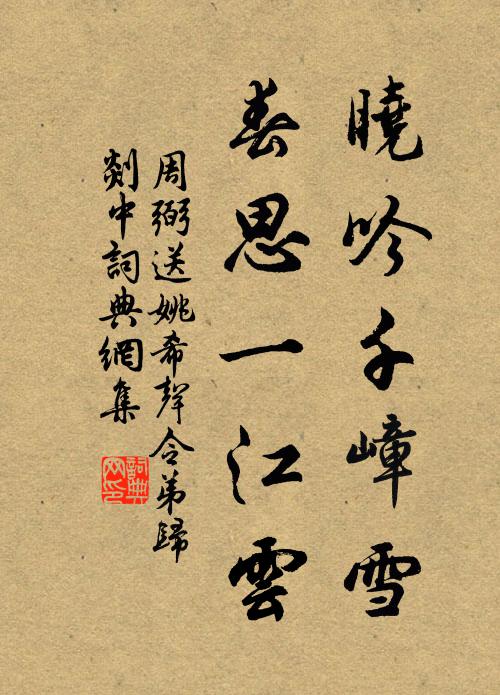 曉吟千嶂雪
春思一江雲
周弼送姚希聲令弟歸
剡中詞典網集
詞典網印